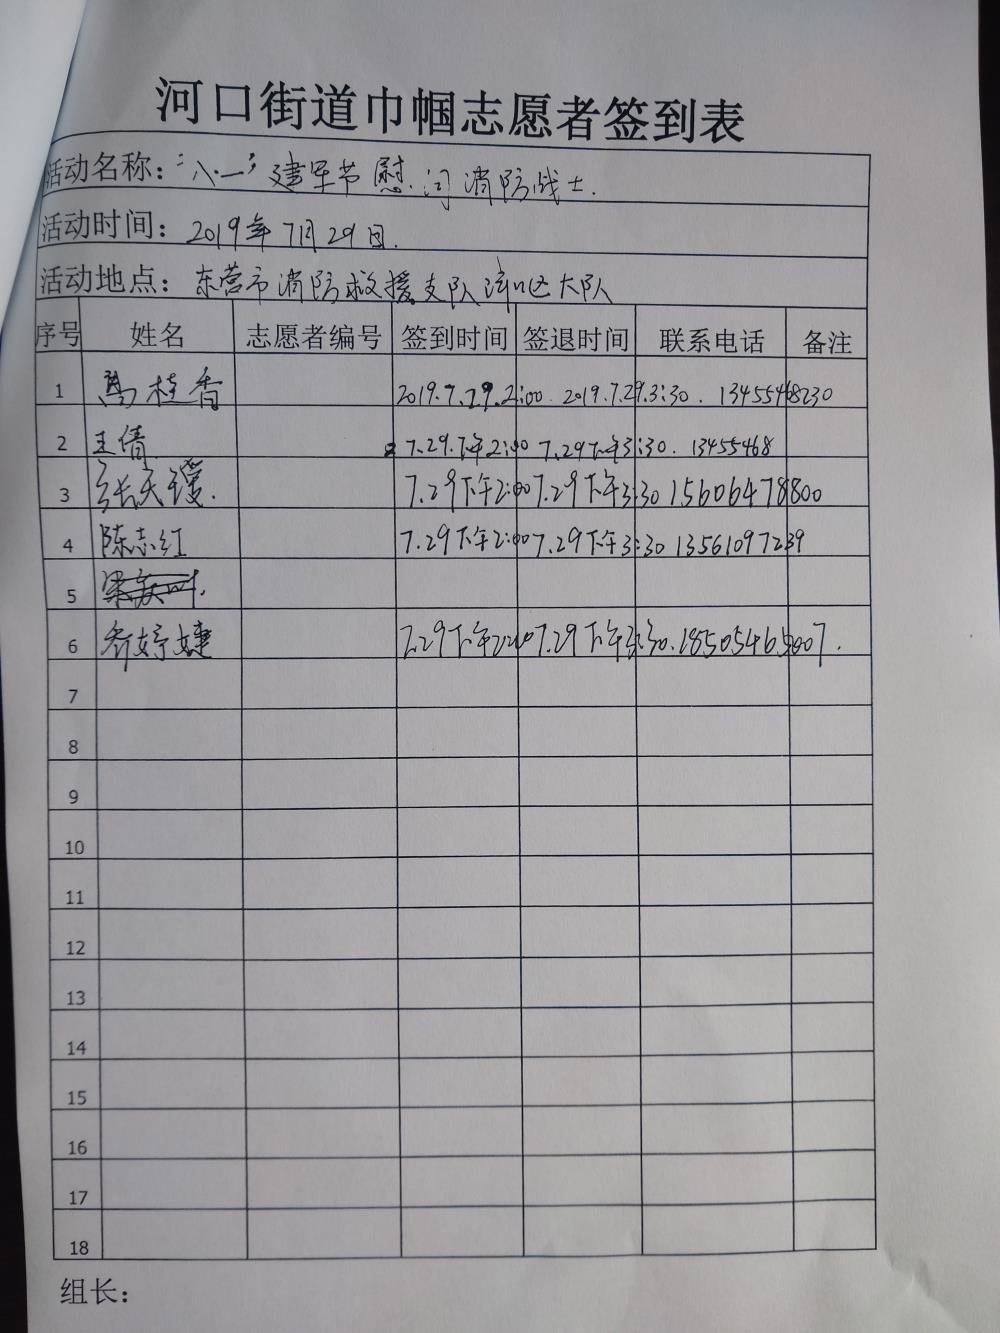 河口街道巾帼志愿者签到表
活动名称：“八一”建军节慰问消防战士.
活动时间：2019年7月29日.
活动地点：东营市消防救援支队河口区大队
序号 姓名 志愿者编号 签到时间 签退时间 联系电话 备注
1 桂香 2019.7.29.2:00. 2019.7.29.3:30. 13455468230
2 王倩 7.29.下午2:00 7.29下午3:30. 13455468
3 张天瑷. 7.29下午2:00 7.29下午3:30 15606478800
4 陈志红 7.29下午2:00 7.29下午3:30 13561097239
5
6 乔婷婕 7.29下午2:00 7.29下午3:30. 18505465007.
7
8
9
10
11
12
13
14
15
16
17
18
组长：